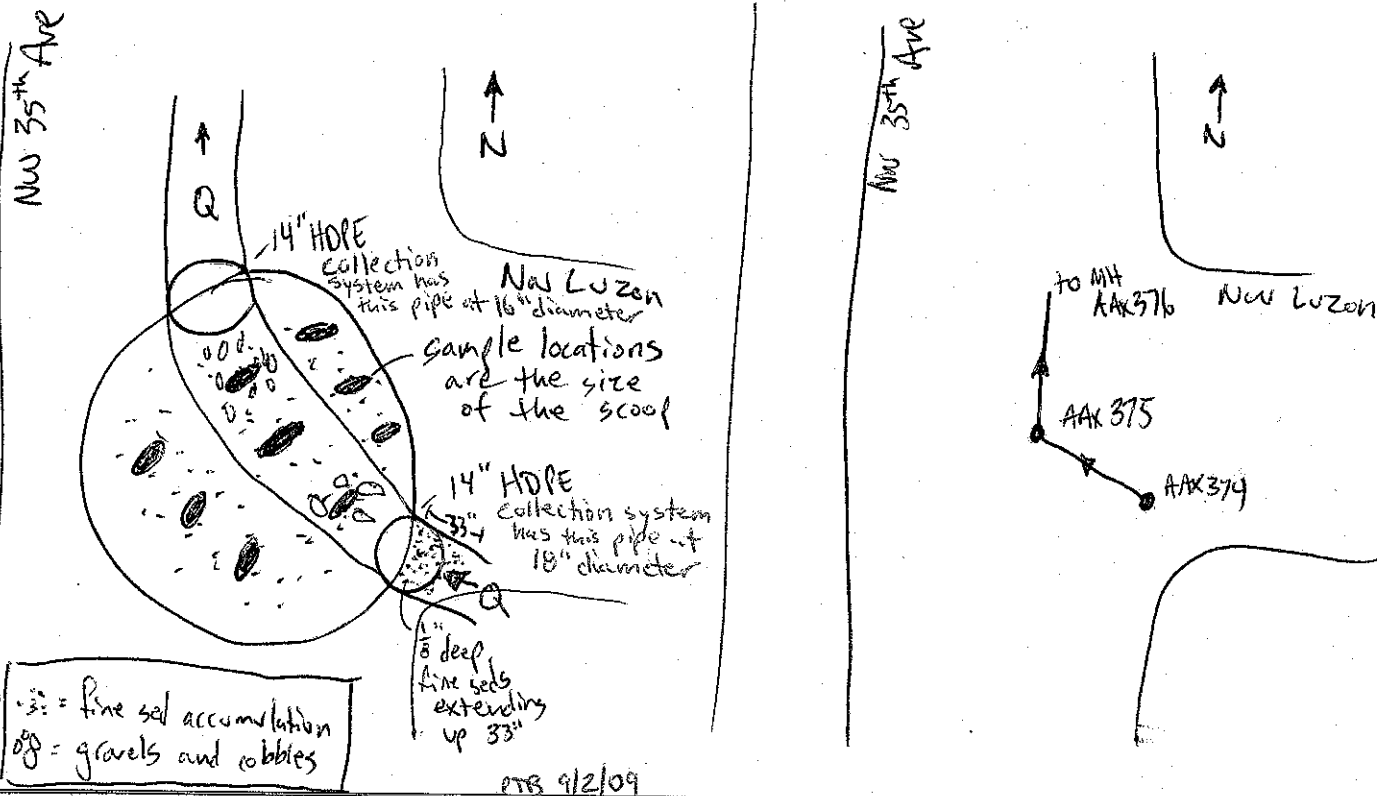 NW 35th Ave
Q
N
14" HDPE
collection
system has
this pipe at 16" diameter
NW Luzon
sample locations
are the size
of the scoop
14" HDPE
33"
collection system
has this pipe at
18" diameter
Q
1/8" deep,
fine seds
extending
up 33"
= fine sed accumulation
= gravels and cobbles
PTB 9/2/09
NW 35th Ave
N
to MH
AAX376
NW Luzon
AAX375
AAX374